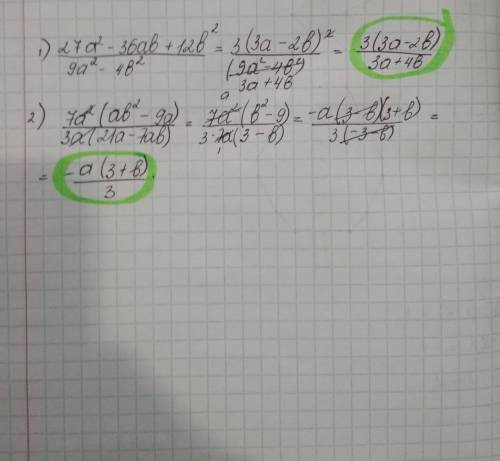 1) (27a² - 36ab + 12b²)/(9a² - 4b²) = 3(3a-2b)²/(9a²-4b²) 3a+4b = 3(3a-2b)/(3a+4b)
2) 7a²(ab²-9a)/3a(21a-7ab) = 7a²(b²-9)/3·7a(3-b) = -a(3-b)(3+b)/3(-3-b) =
= -a(3+b)/3.